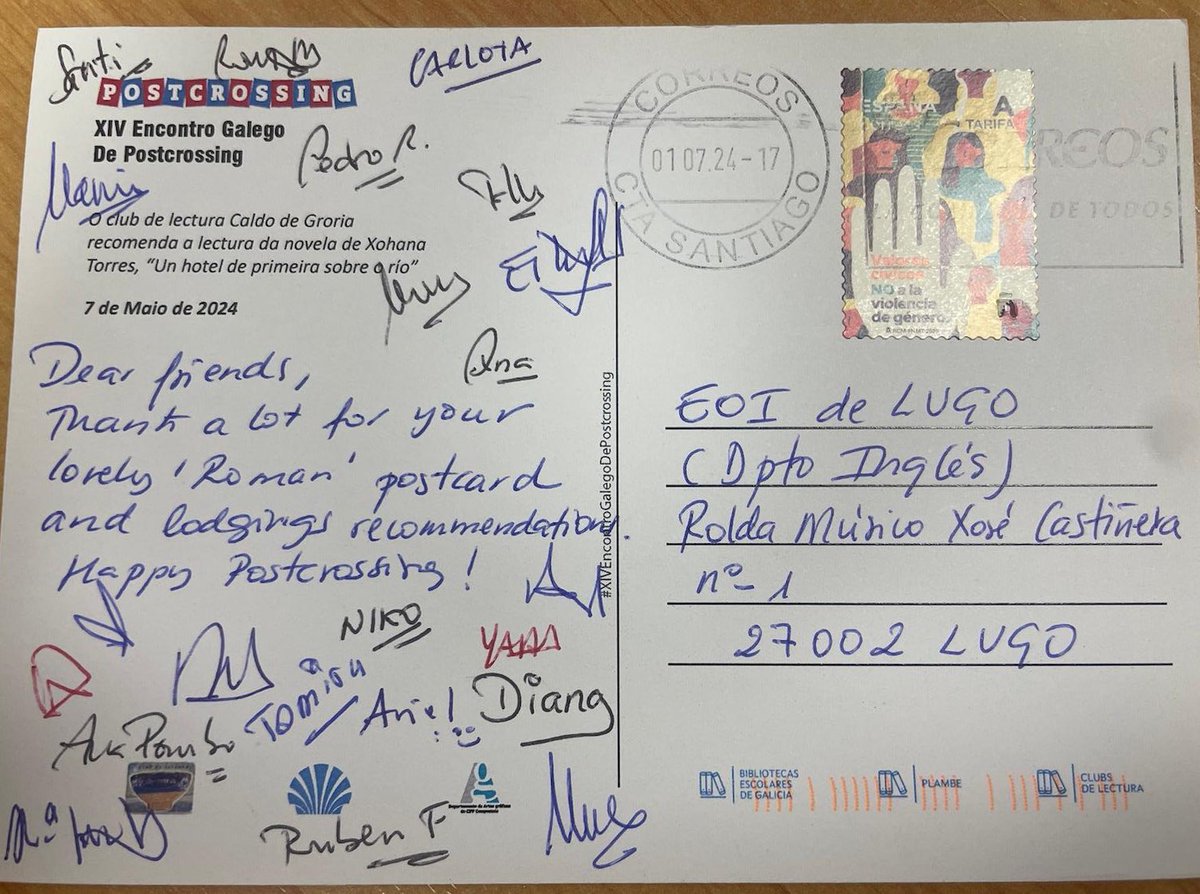 Santi
CARLOTA
POSTCROSSING
XIV Encontro Galego
De Postcrossing
Pedro R.
O club de lectura Caldo de Groria
recomenda a lectura da novela de Xohana
Torres, “Un hotel de primeira sobre o río”
7 de Maio de 2024
Ana
Dear friends,
Thank a lot for your
lovely 'Roman' postcard
and lodgings recommendations.
Happy Postcrossing!
NIKO
YARA
Tomiou
Ariel
Diana
Ana Pombo
Departamento de Artes gráficas
Ruben F
#XIVEncontroGalegoDePostcrossing
CORREOS
01 07.24-17
CTA SANTIAGO
ESPAÑA
A
TARIFA
Valores
cívicos
NO a la
violencia
de género
RREOS
DE TODOS
EOI de LUGO
(Dpto Inglés)
Rolda Músico Xosé Castiñeira
nº-1
27002 LUGO
BIBLIOTECAS
ESCOLARES
DE GALICIA
PLAMBE
CLUBS
DE LECTURA